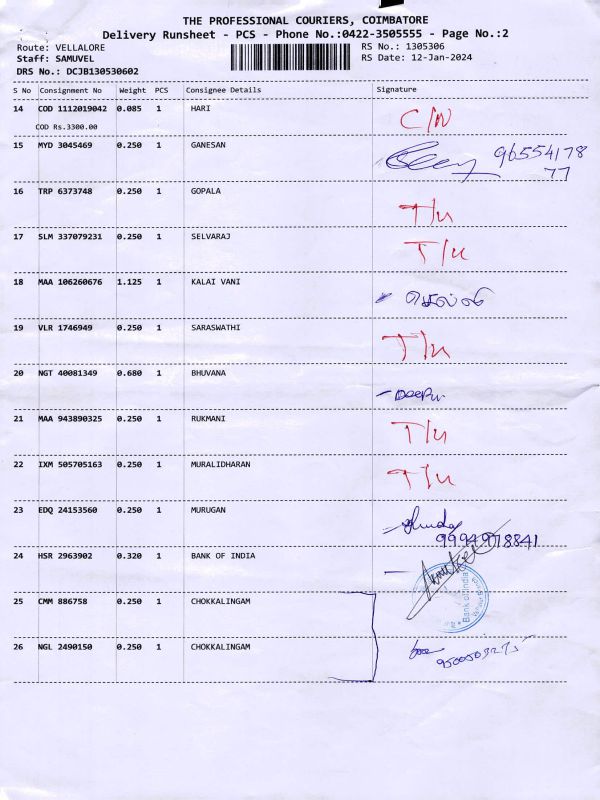 THE PROFESSIONAL COURIERS, COIMBATORE
Delivery Runsheet - PCS - Phone No.:0422-3505555 - Page No.:2
Route: VELLALORE RS No.: 1305306
Staff: SAMUVEL RS Date: 12-Jan-2024
DRS No.: DCJB130530602
S No Consignment No Weight PCS Consignee Details Signature
14 COD 1112019042 0.085 1 HARI C/N
COD Rs.3300.00
15 MYD 3045469 0.250 1 GANESAN 96554178
77
16 TRP 6373748 0.250 1 GOPALA T/u
17 SLM 337079231 0.250 1 SELVARAJ T/u
18 MAA 106260676 1.125 1 KALAI VANI
19 VLR 1746949 0.250 1 SARASWATHI T/u
20 NGT 40081349 0.680 1 BHUVANA
21 MAA 943890325 0.250 1 RUKMANI T/u
22 IXM 505705163 0.250 1 MURALIDHARAN T/u
23 EDQ 24153560 0.250 1 MURUGAN
9994978841
24 HSR 2963902 0.320 1 BANK OF INDIA
Bank of India
25 CMM 886758 0.250 1 CHOKKALINGAM
26 NGL 2490150 0.250 1 CHOKKALINGAM